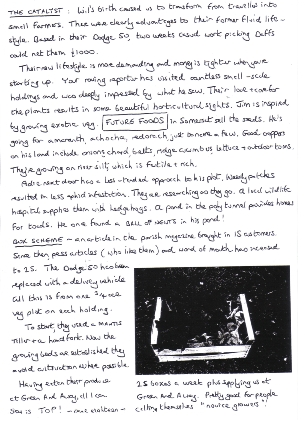 THE CATALYST : Lil's birth caused us to transform from traveller into
small farmers. There were clearly advantages to their former fluid life-
style. Based in their Dodge 50, two weeks casual work picking Daffs
could net them £1000.
Their new lifestyle is more demanding and money is tighter when you're
starting up. Your roving reporter has visited countless small-scale
holdings and was deeply impressed by what he saw. Their love + care for
the plants results in some beautiful horticultural sights. Tim is inspired
by growing exotic veg. FUTURE FOODS in Somerset sell the seeds. He's
going for amaranth, achocha, red orach just to name a few. Good croppers
on his land include onions chard beets ridge cucumbers lettuce + outdoor toms.
They're growing on river silt which is fertile + rich.
resident deer has a less-than approach to his plot. Weedy patches
resulted in less aphid infestation. They are researching as they go. A local wildlife
hospital supplies them with hedgehogs. A pond in the poly tunnel provides homes
for toads. He once found a BALL of newts in his pond!
BOX SCHEME - an article in the parish magazine brought in 15 customers.
Since then press articles (who like them) and word of mouth has increased
to 25. The Dodge 50 has been
replaced with a delivery vehicle
all this is from one 3/4 acre
veg plot on each holding.
To start, they used a
tiller + a hand fork. Now the
growing beds are established they
avoid cultivation where possible.
Having eaten their produce
at Green And Away, all I can
say is TOP! -
25 boxes a week plus supplying us at
Green And Away. Pretty good for people
calling themselves "novice growers"!